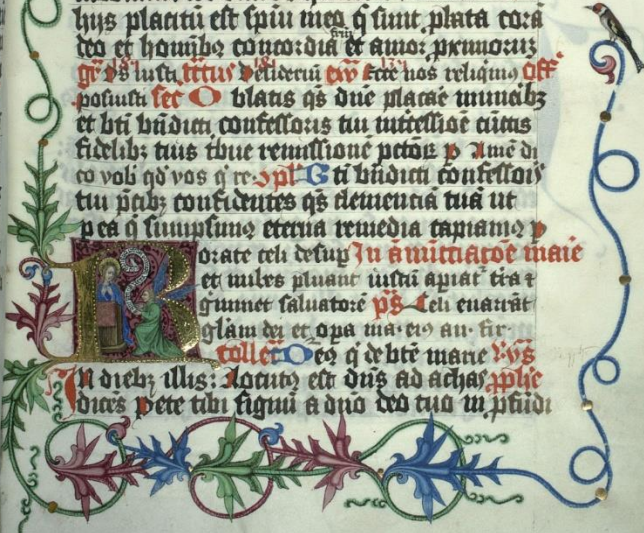 hijs placitū est spiū meo q̄ sunt ꝓbata corā
deo et homībꝫ concordia et amor pximorum
gr̄ Os iusti tractus Desideriū ew̄ Ecce nos reliqimꝰ off̄
posuisti sec̄ Oblatis qs dūe placare muneribꝫ
et bt̄i bn̄dicti confessoris tui intercessiōe cūctis
fidelibꝫ tuis tbue remissionē pctōꝝ ꝑ Amē di
co vobi qd vos q re ꝯpl̄ bt̄i bn̄dicti confessoris
tui p̄cibꝫ confidentes qs clementiā tuā ut
p ea q̄ sumpsimꝰ eterna remedia capiamꝰ ꝑ
Rorate celi desuꝑ In ānunciatōe marie
et nubes pluant iustū apiatʳ tr̄a ⁊
gʳminet saluatorē ps̄ Celi enarrāt
glām dei et opa ma· eiꝰ an· fir·
collec̄ Deꝰ q̄ de btē marie Ysaye
In diebꝫ illis: Locutꝰ est dn̄s ad achas ꝓphe
dices Pete tibi signū a dn̄o deo tuo in ꝓfūdū